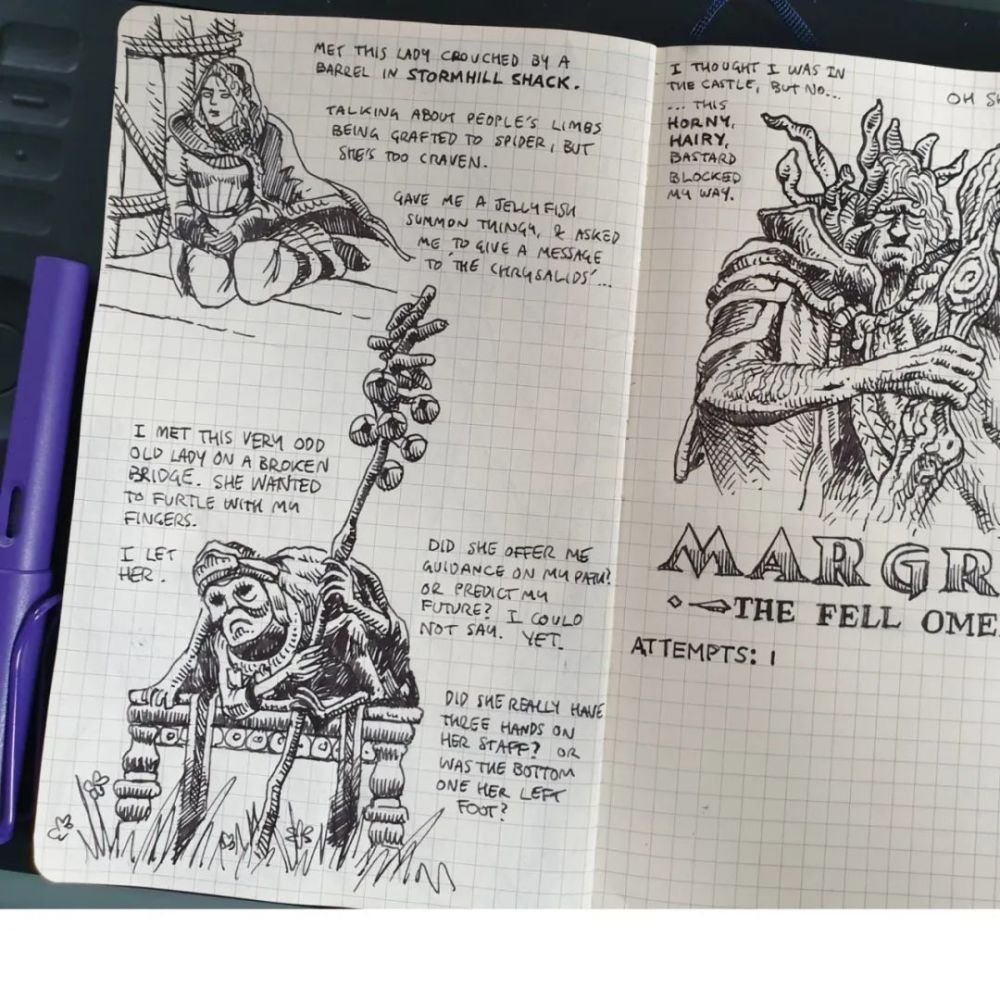 MET THIS LADY CROUCHED BY A
BARREL IN STORMHILL SHACK.
TALKING ABOUT PEOPLE'S LIMBS
BEING GRAFTED TO SPIDER, BUT
SHE'S TOO CRAVEN.
GAVE ME A JELLYFISH
SUMMON THINGY, & ASKED
ME TO GIVE A MESSAGE
TO 'THE CHRYSALIDS'...
I MET THIS VERY ODD
OLD LADY ON A BROKEN
BRIDGE. SHE WANTED
TO FURTLE WITH MY
FINGERS.
I LET
HER.
DID SHE OFFER ME
GUIDANCE ON MY PATH?
OR PREDICT MY
FUTURE? I COULD
NOT SAY. YET.
DID SHE REALLY HAVE
THREE HANDS ON
HER STAFF? OR
WAS THE BOTTOM
ONE HER LEFT
FOOT?
I THOUGHT I WAS IN
THE CASTLE, BUT NO...
... THIS
HORNY,
HAIRY,
BASTARD
BLOCKED
MY WAY.
OH
MARGR
THE FELL OME
ATTEMPTS: 1